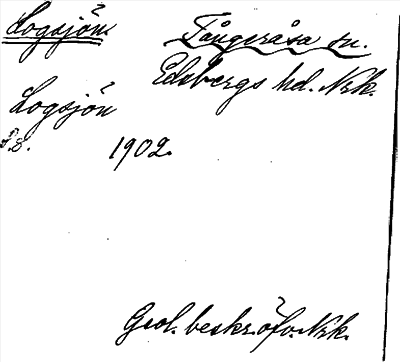 Logsjön Tångeråsa sn.
Edsbergs hd. Nrk.
Logsjön
1902.
Geol. beskr. öfv. Nrk.